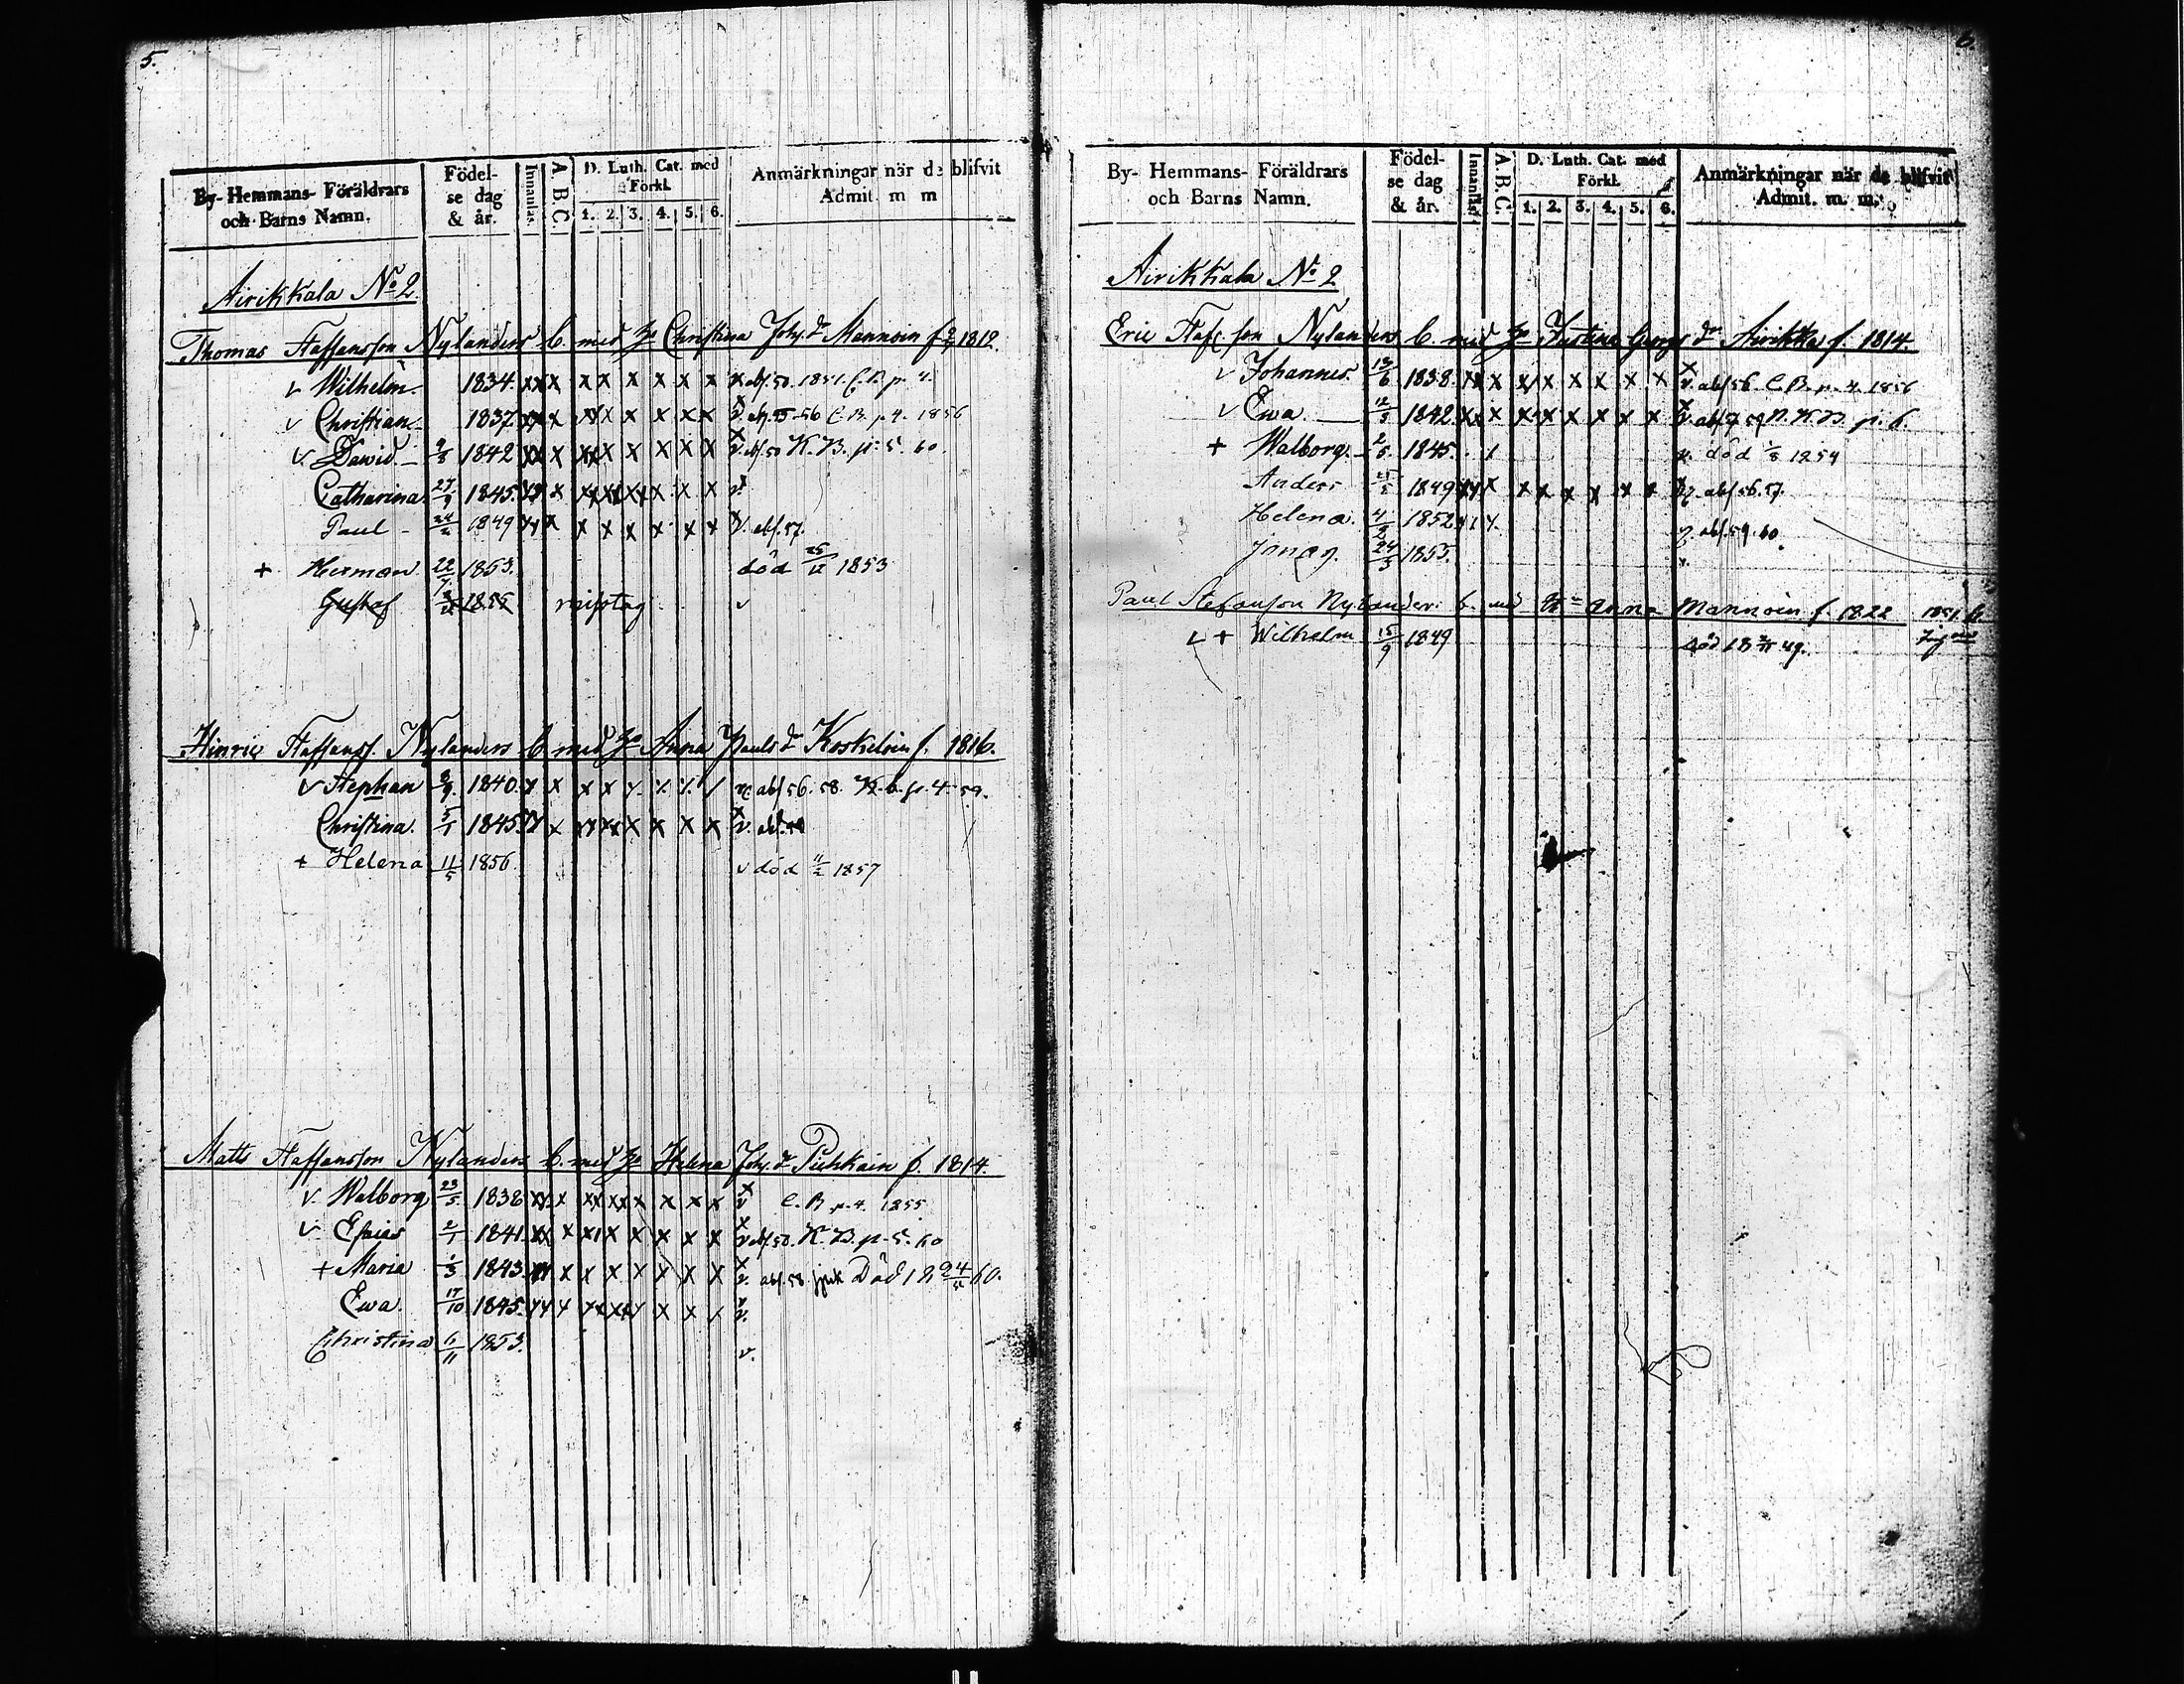 5.
By- Hemmans- Föräldrars och Barns Namn. Födelse dag & år. Innanläs. A B C. D. Luth. Cat. med Förkl. 1. 2. 3. 4. 5. 6. Anmärkningar när de blifvit Admit. m m
Airikkala No 2
Thomas Staffansson Nylanders b. med Christina Joh. dr Mannoin f. 1812.
v Wilhelm 1834. xx x x x x x x x x abs. 50. 1851. C. B. p. 4.
v Christian 1837. xx x xx x x x x x v. 56 C. B. p. 4. 1856
v. Dawid 9/8 1842 xx x xx x x x x x v. abs. 50 K. B. p. 5. 60.
Catharina 27/9 1845. x xx xx xx x x x v.
Paul 24/2 1849 x x x x x x x x v. abs. 57.
+ Herman 22/7 1853. död 25/12 1853
Gustaf 1855 misstag v
Hinric Staffanss. Nylanders b. med Anna Pauls dr Koskeloin f. 1816.
v Stephan 8/9. 1840. x x x x x x x / abs 56. 58. K. b. p. 4. 59.
Christina. 5/1 1845. x xx xx x x x x v. abs.
+ Helena 11/5 1856 v död 11/2 1857
Matts Staffansson Nylanders b. med Helena Joh. dr Puhkain f. 1814.
v. Walborg 23/5. 1838 xx x xx xx x x x x v C. B. p. 4. 1855
v Esaias 2/1 1841. xx x xx x x x x x v abs. 50. K. B. p. 5. 60
+ Maria 1/3 1843. x x x x x x x v. abs. 58 sjuk Död 18 24/ 60.
Ewa. 17/10 1845. xx x xx xx x x x v.
Christina 6/11 1853. v.
6.
By- Hemmans- Föräldrars och Barns Namn. Födelse dag & år. Innanläs. A. B. C. D. Luth. Cat. med Förkl. 1. 2. 3. 4. 5. 6. Anmärkningar när de blifvit Admit. m. m.
Airikkala No 2
Eric Staf. son Nylanders b. med Justina Georgs dr Airikka f. 1814.
v Johannes. 13/6 1838. xx x x x x x x x v. abs 56. C. B. p. 4. 1856
v Ewa. 12/3 1842. xx x x x x x x x v. abs. 57 N. K. B. p. 6.
+ Walborg. 2/5. 1845. . 1 död 1/8 1854
Anders 1849 xx x x x x x x x abs 56. 57.
Helena. 4/2 1852 x 1 x. abs. 59. 60
Jonas. 24/3 1855. v.
Paul Stefanson Nylanders b. med Anna Mannoin f. 1822
v + Wilhelm 15/9 1849 död 18 49.